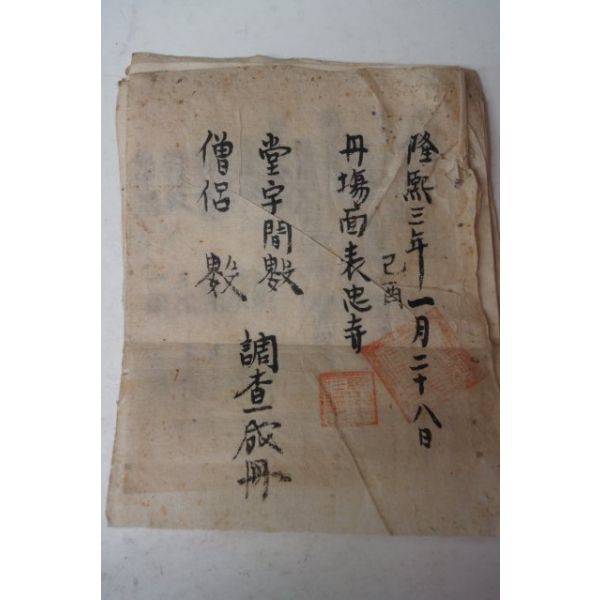 隆熙三年 己酉 一月二十八日
丹場面表忠寺
堂宇間數
僧侶 數
調查成冊